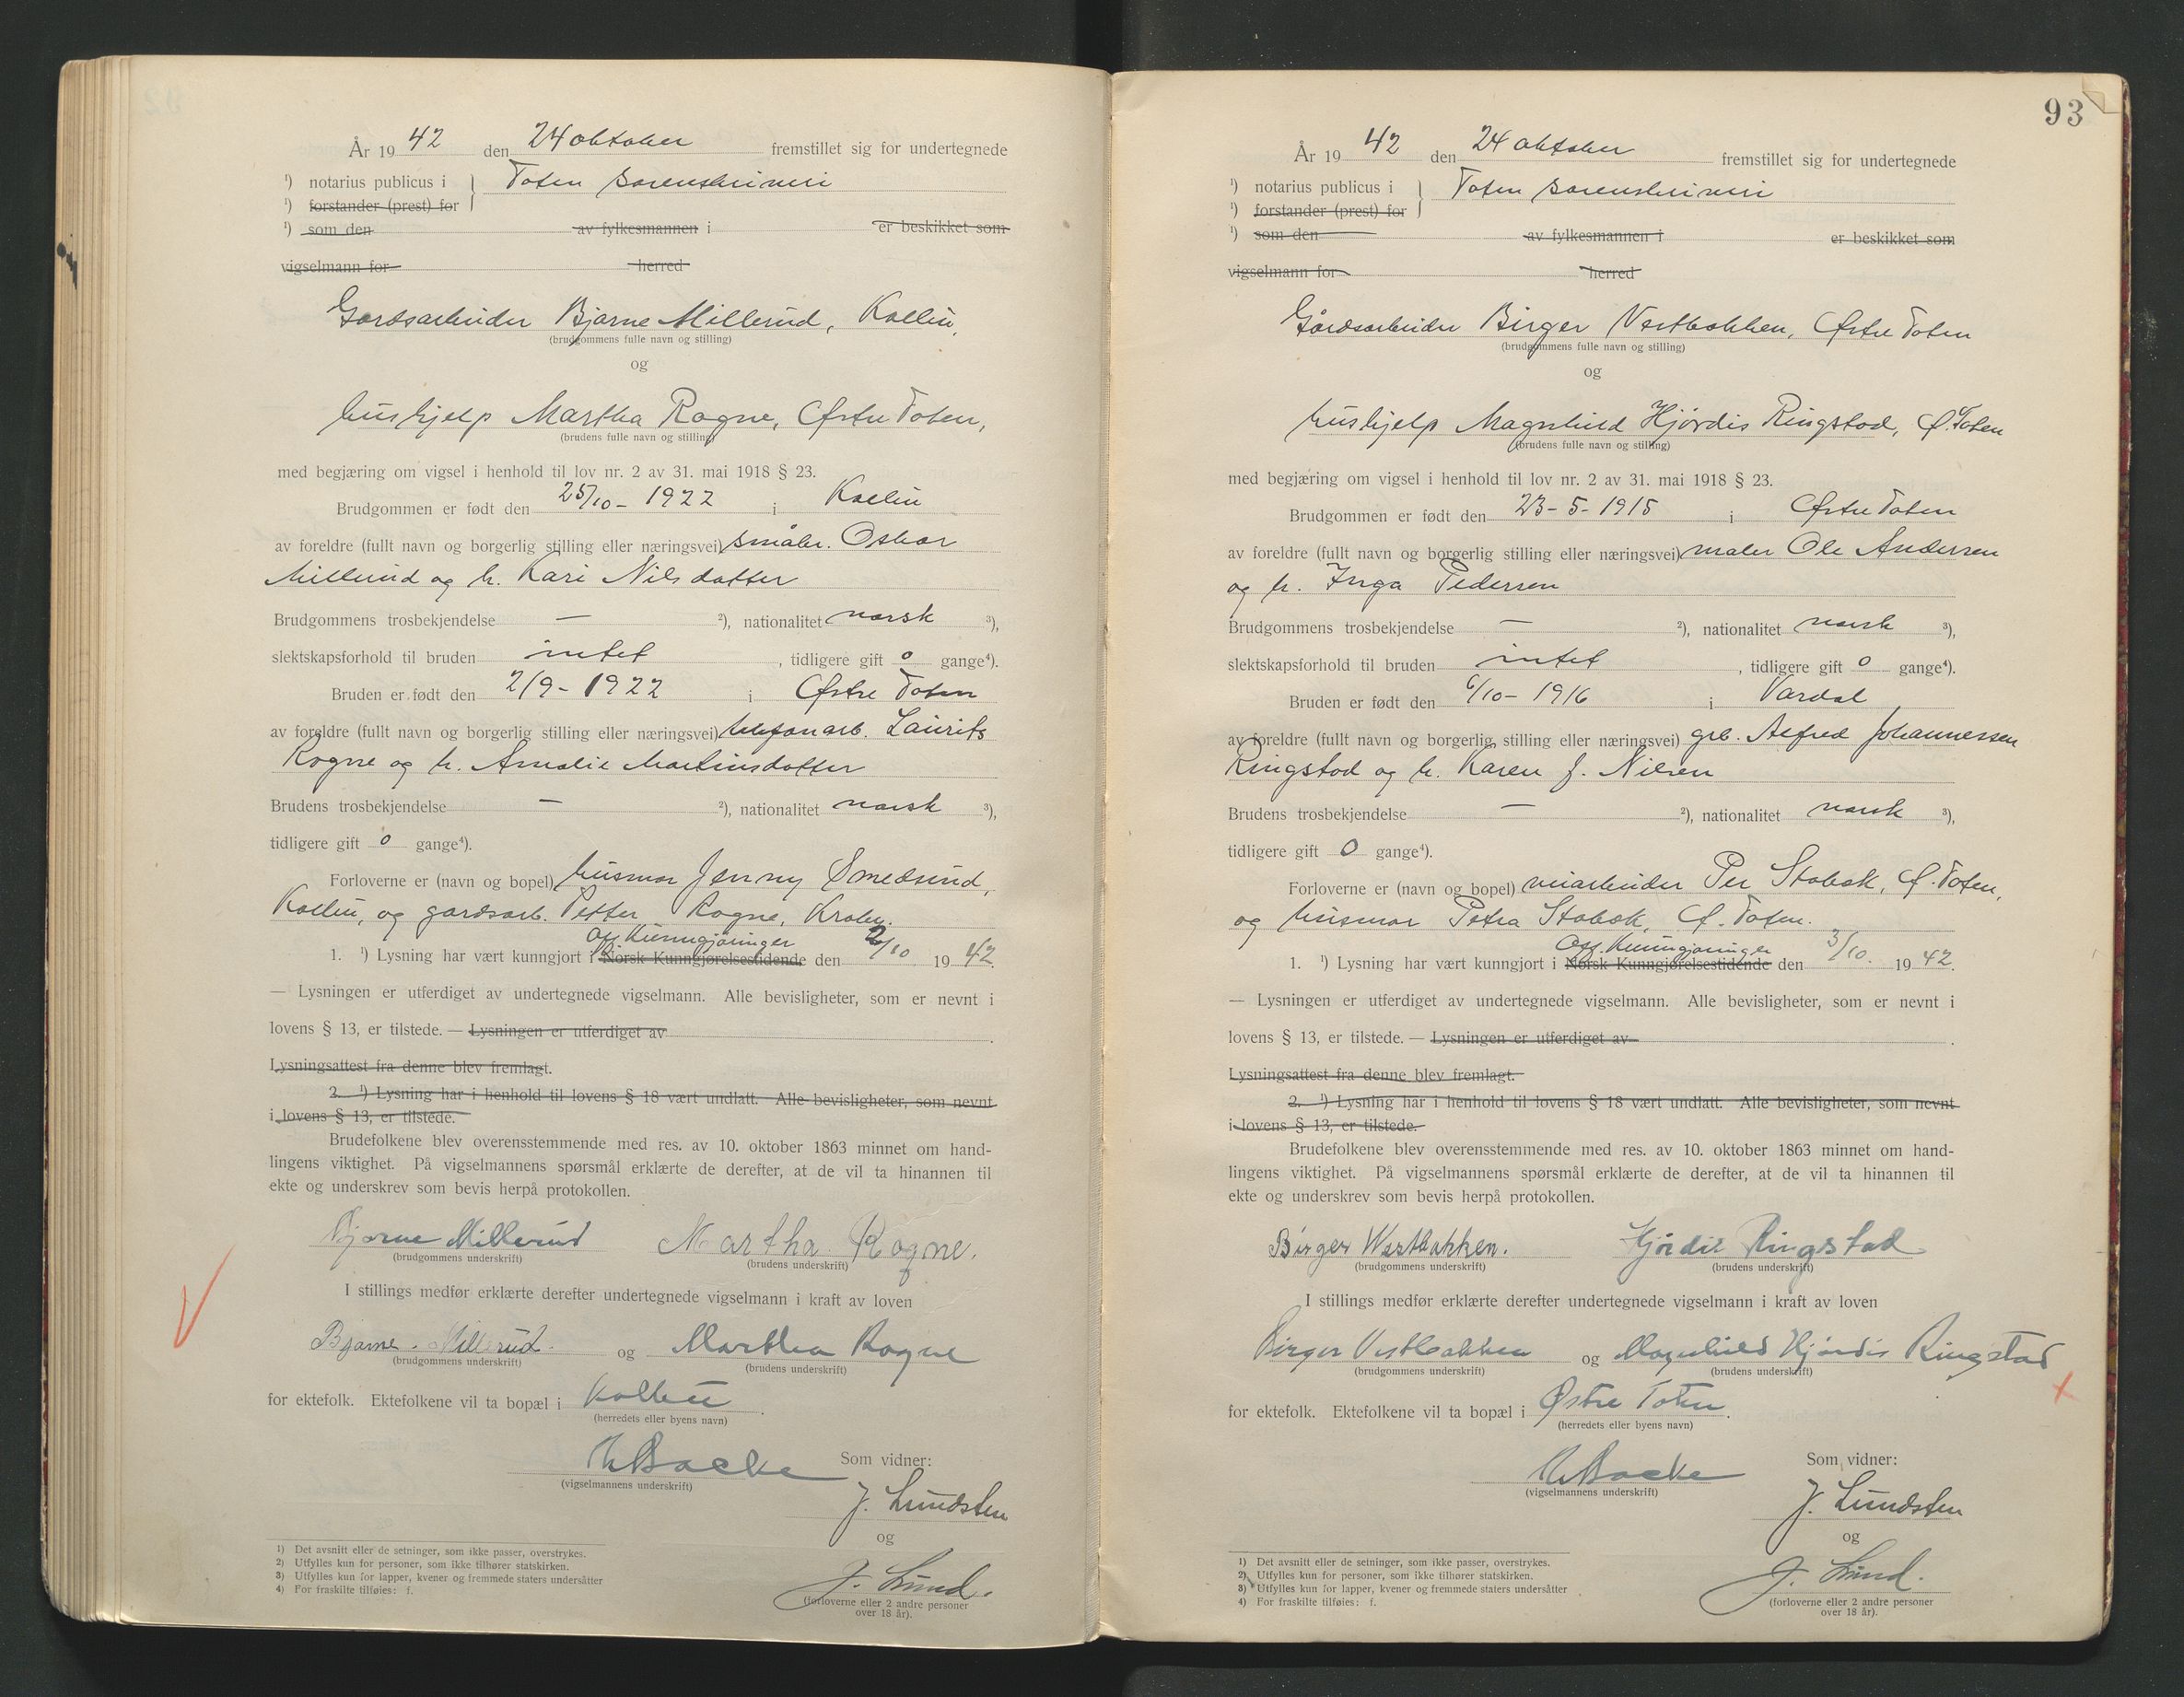 År 1942 den 24 oktober fremstillet sig for undertegnede
¹) notarius publicus i } Toten sorenskriveri
¹) forstander (prest) for
¹) som den av fylkesmannen i er beskikket som
vigselmann for herred
Gardsarbeider Bjarne Millerud, Kolbu,
(brudgommens fulle navn og stilling)
og
hushjelp Martha Rogne, Østre Toten,
(brudens fulle navn og stilling)
med begjæring om vigsel i henhold til lov nr. 2 av 31. mai 1918 § 23.
Brudgommen er født den 25/10 - 1922 i Kolbu
av foreldre (fullt navn og borgerlig stilling eller næringsvei) småbr. Oskar
Millerud og h. Kari Nilsdatter
Brudgommens trosbekjendelse — ²), nationalitet norsk ³),
slektskapsforhold til bruden intet, tidligere gift 0 gange⁴).
Bruden er født den 2/9 - 1922 i Østre Toten
av foreldre (fullt navn og borgerlig stilling eller næringsvei) telefonarb. Laurits
Rogne og h. Amalie Martinsdatter
Brudens trosbekjendelse — ²), nationalitet norsk ³),
tidligere gift 0 gange⁴).
Forloverne er (navn og bopel) husmor Jenny Smedsrud,
Kolbu, og gardsarb. Petter Rogne, Kraby.
off. Kunngjøringer
1. ¹) Lysning har vært kunngjort i Norsk Kunngjørelsestidende den 2/10 1942.
— Lysningen er utferdiget av undertegnede vigselmann. Alle bevisligheter, som er nevnt i
lovens § 13, er tilstede. — Lysningen er utferdiget av
Lysningsattest fra denne blev fremlagt.
2. ¹) Lysning har i henhold til lovens § 18 vært undlatt. Alle bevisligheter, som nevnt
i lovens § 13, er tilstede.
Brudefolkene blev overensstemmende med res. av 10. oktober 1863 minnet om hand-
lingens viktighet. På vigselmannens spørsmål erklærte de derefter, at de vil ta hinannen til
ekte og underskrev som bevis herpå protokollen.
Bjarne Millerud Martha Rogne.
(brudgommens underskrift) (brudens underskrift)
I stillings medfør erklærte derefter undertegnede vigselmann i kraft av loven
Bjarne Millerud og Martha Rogne
(brudgommens underskrift) (brudens underskrift)
for ektefolk. Ektefolkene vil ta bopæl i Kolbu.
(herredets eller byens navn)
Backe Som vidner:
(vigselmannens underskrift)
J. Lundsten
og
J. Lund.
(forloverne eller 2 andre personer
over 18 år).
1) Det avsnitt eller de setninger, som ikke passer, overstrykes.
2) Utfylles kun for personer, som ikke tilhører statskirken.
3) Utfylles kun for lapper, kvener og fremmede staters undersåtter
4) For fraskilte tilføies: f.
93
År 1942 den 24 oktober fremstillet sig for undertegnede
¹) notarius publicus i } Toten sorenskriveri
¹) forstander (prest) for
¹) som den av fylkesmannen i er beskikket som
vigselmann for herred
Gårdsarbeider Birger Vestbakken, Østre Toten
(brudgommens fulle navn og stilling)
og
hushjelp Magnhild Hjørdis Ringstad, Ø. Toten
(brudens fulle navn og stilling)
med begjæring om vigsel i henhold til lov nr. 2 av 31. mai 1918 § 23.
Brudgommen er født den 23-5-1915 i Østre Toten
av foreldre (fullt navn og borgerlig stilling eller næringsvei) maler Ole Andersen
og h. Inga Pedersen
Brudgommens trosbekjendelse — ²), nationalitet norsk ³),
slektskapsforhold til bruden intet, tidligere gift 0 gange⁴).
Bruden er født den 6/10 - 1916 i Vardal
av foreldre (fullt navn og borgerlig stilling eller næringsvei) grb. Alfred Johannessen
Ringstad og h. Karen f. Nilsen
Brudens trosbekjendelse — ²), nationalitet norsk ³),
tidligere gift 0 gange⁴).
Forloverne er (navn og bopel) veiarbeider Per Stabak, Ø. Toten,
og husmor Petra Stabak, Ø. Toten.
Off. Kunngjøringer
1. ¹) Lysning har vært kunngjort i Norsk Kunngjørelsestidende den 3/10. 1942.
— Lysningen er utferdiget av undertegnede vigselmann. Alle bevisligheter, som er nevnt i
lovens § 13, er tilstede. — Lysningen er utferdiget av
Lysningsattest fra denne blev fremlagt.
2. ¹) Lysning har i henhold til lovens § 18 vært undlatt. Alle bevisligheter, som nevnt
i lovens § 13, er tilstede.
Brudefolkene blev overensstemmende med res. av 10. oktober 1863 minnet om hand-
lingens viktighet. På vigselmannens spørsmål erklærte de derefter, at de vil ta hinannen til
ekte og underskrev som bevis herpå protokollen.
Birger Westbakken. Hjørdis Ringstad
(brudgommens underskrift) (brudens underskrift)
I stillings medfør erklærte derefter undertegnede vigselmann i kraft av loven
Birger Vestbakken og Magnhild Hjørdis Ringstad
(brudgommens underskrift) (brudens underskrift)
for ektefolk. Ektefolkene vil ta bopæl i Østre Toten.
(herredets eller byens navn)
Backe Som vidner:
(vigselmannens underskrift)
J. Lundsten
og
J. Lund.
(forloverne eller 2 andre personer
over 18 år).
1) Det avsnitt eller de setninger, som ikke passer, overstrykes.
2) Utfylles kun for personer, som ikke tilhører statskirken.
3) Utfylles kun for lapper, kvener og fremmede staters undersåtter
4) For fraskilte tilføies: f.